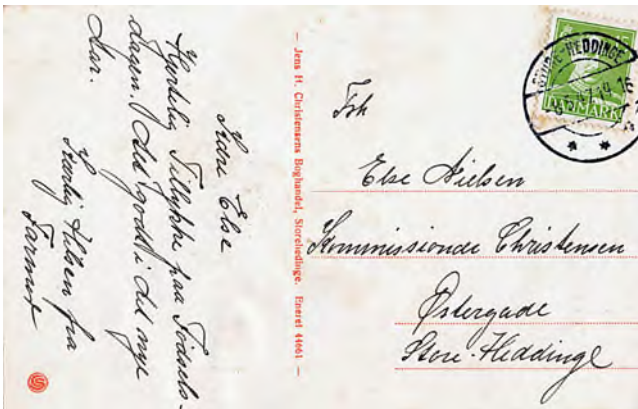 Kære Else
Hjertelig Tillykke paa Fødsels-
dagen. Alt godt i det nye
Aar.
Kærlig Hilsen fra
Farmor
— Jens H. Christensens Boghandel, Storehedinge. Eneret 44661 —
STORE-HEDDINGE
DANMARK
Frk
Else Nielsen
Kommissionær Christensen
Østergade
Store-Heddinge